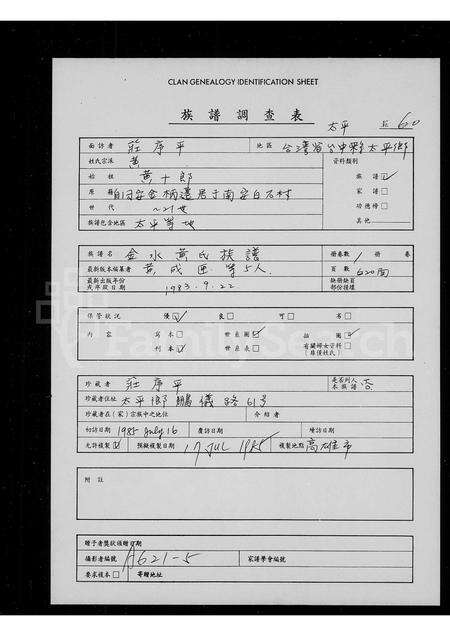 CLAN GENEALOGY IDENTIFICATION SHEET
族譜調查表
太平 60
面訪者 莊序平 地區 台灣省台中縣太平鄉
姓氏宗派 黃 資料類別
始祖 黃十郎 族譜 ☑
原籍 自同安金柄遷居于南安白石村 家譜 □
世代 ~21世 功德榜 □
族譜包含地區 太平等地 其他
族譜名 金水黃氏族譜 冊卷數 / 冊 卷
最新版本編纂者 黃成 等5人 頁數 620面
最新出版年份或序跋日期 1983.9.22 缺冊缺頁部份描述
保管狀況 優 ☑ 良 □ 可 □ 劣 □
內容 寫本 □ 世系圖 ☑ 插圖 ☑
刊本 ☑ 世系表 □ 有關婦女資料 □
珍藏者 莊序平 是否列入本族譜 否
珍藏者住址 太平鄉鵬儀路61号
珍藏者在(家)宗族中之地位 介紹者
初訪日期 1985 July 16 覆訪日期 績訪日期
允許複製 ☑ 撰擬複製日期 17 JUL 1985 複製地點 高雄市
附註
贈予者獎狀頒贈日期
攝影者編號 A621-5 家譜學會編號
要求複本 □ 寄贈地址
FamilySearch